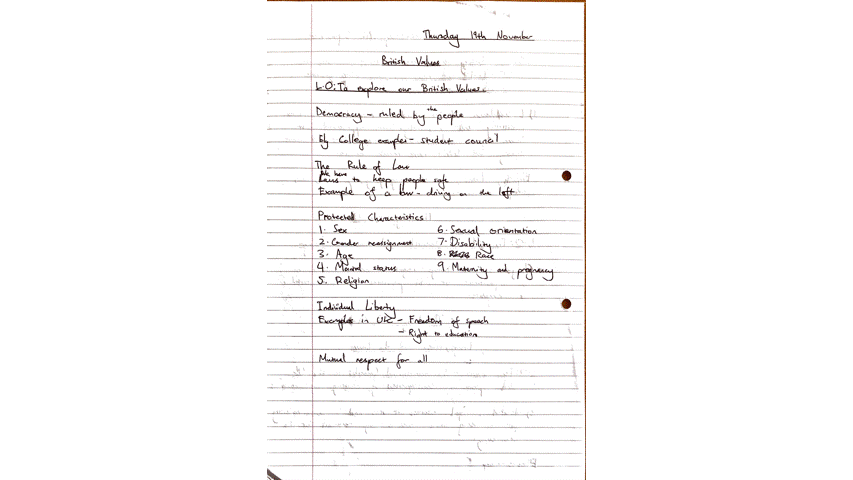 Thursday 19th November
British Values
L.O: To explore our British Values.
Democracy - ruled by the people
Ely College example - student council
The Rule of Law
We have Laws to keep people safe
Example of a law - driving on the left
Protected Characteristics
1. Sex
2. Gender reassignment
3. Age
4. Marital status
5. Religion
6. Sexual orientation
7. Disability
8. Race
9. Maternity and pregnancy
Individual Liberty
Examples in UK - Freedom of speech
- Right to education
Mutual respect for all